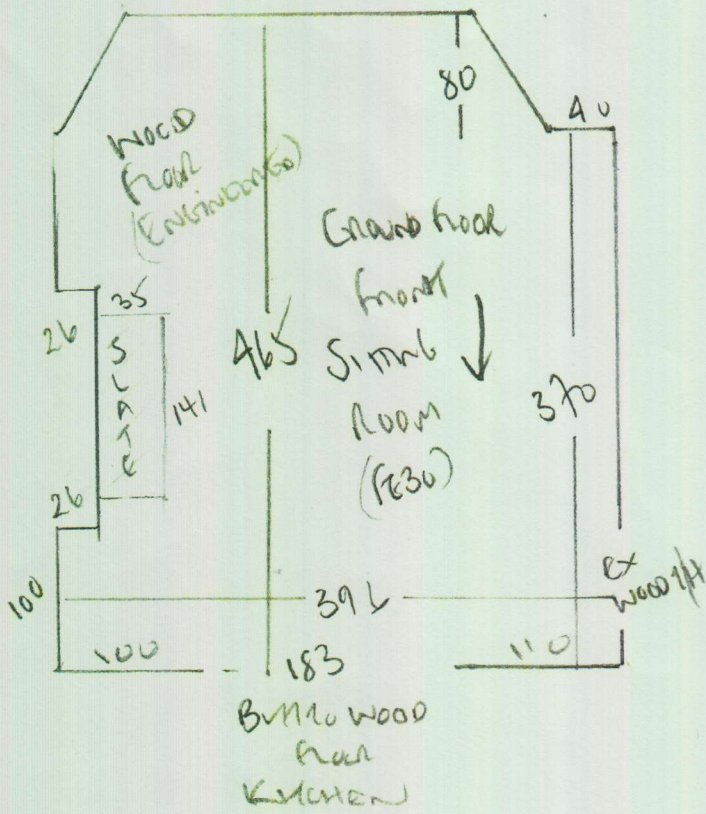 80
40
WOOD
FLOOR
(ENGINEERED)
GROUND FLOOR
FRONT
SITTING
ROOM
(FE30)
35
26
SLATE
141
465
370
26
100
391
EX
WOOD
100
183
110
WOOD
FLOOR
KITCHEN